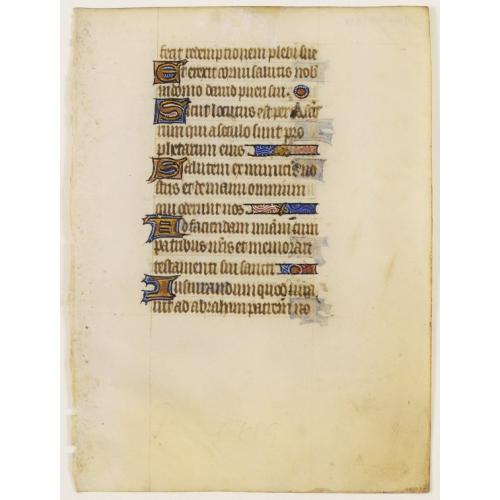 fecit redemptionem plebi sue
Et erexit cornu salutis nob
in domo david pueri sui.
Sicut locutus est per as̄cor
rum qui a seculo sunt pro
phetarum eius
Salutem ex inimicis no
stris et de manu omnium
qui oderunt nos
Ad faciendam miām cum
patribus nr̄is et memorari
testamenti sui sancti
Iusiurandum quod iura
uit ad abraham patrem no